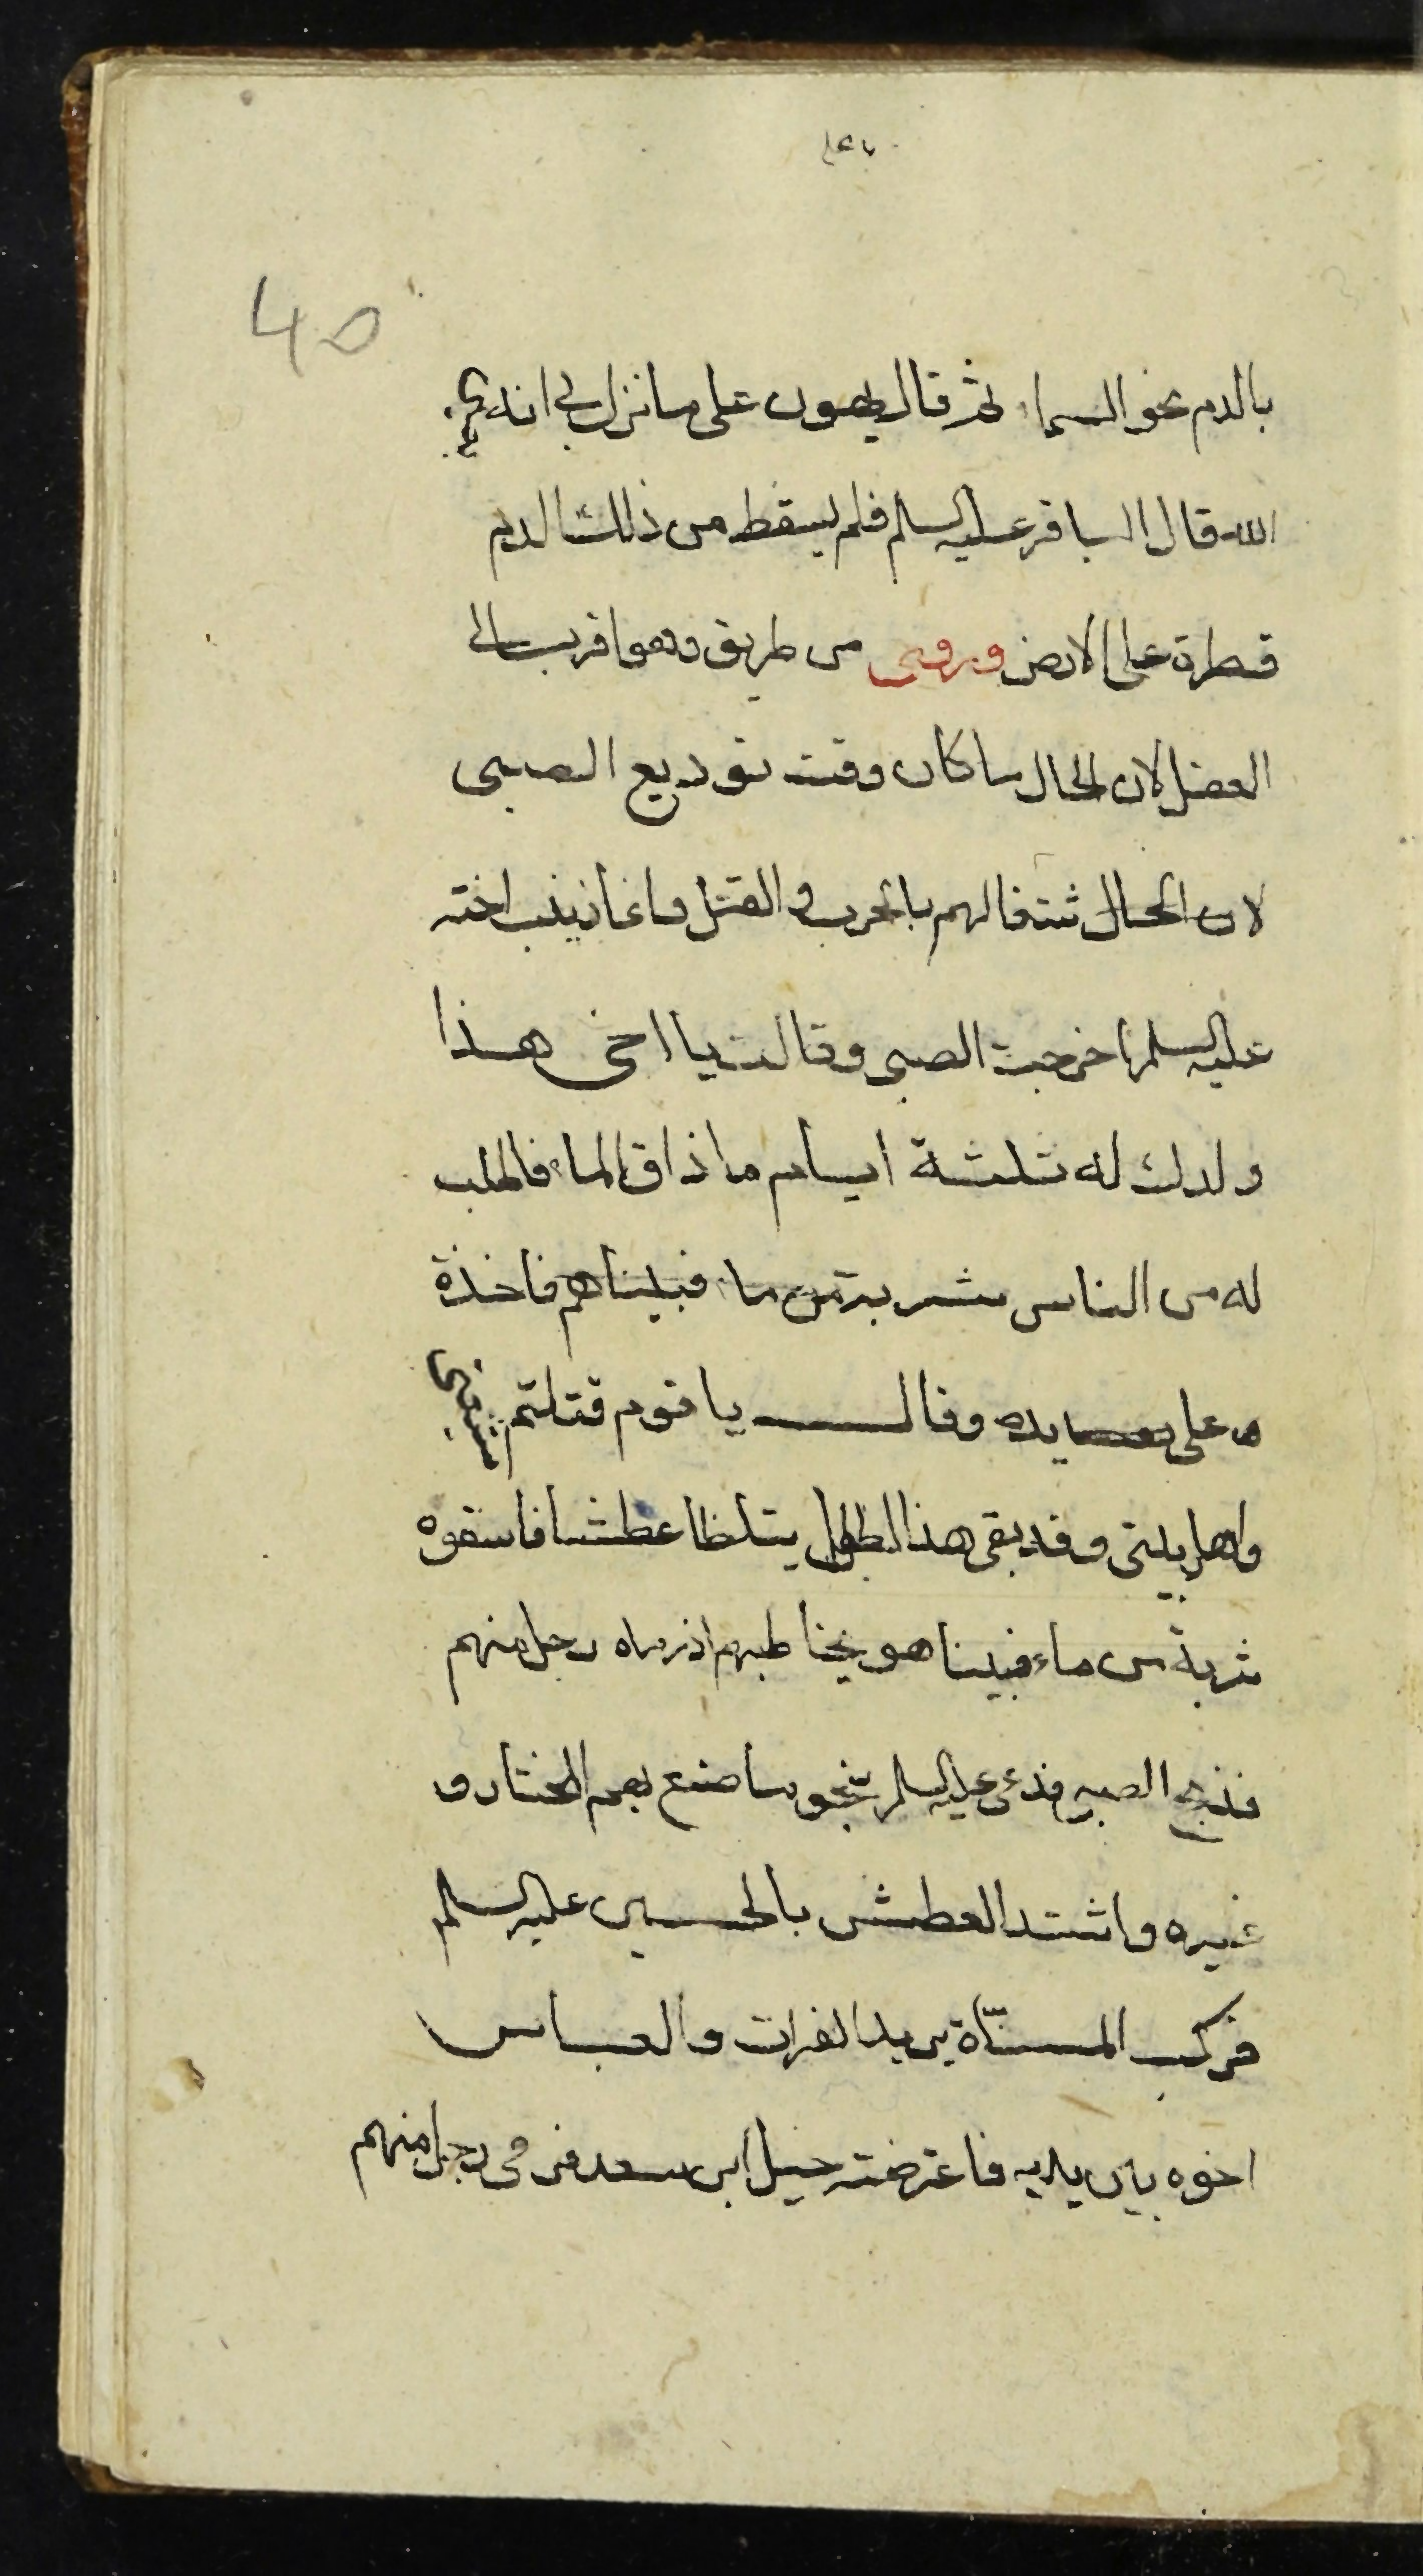 40
بالدم نحو السماء ثم قال يهون على ما نزل بي انه بعين
الله قال الباقر عليه السلم فلم يسقط من ذلك الدم
قطرة على الارض وروى من طريق وهو اقرب الى
العقل لان الحال ما كان وقت توديع الصبى
لان الحال ثتغالهم بالحرب و القتل وانما زينب اخته
عليه السلم اخرجت الصبى وقالت يا اخى هذا
ولدك له ثلثة ايام ما ذاق الماء فاطلب
له من الناس شربة من ماء فبيناهم فاخذة
ه على يده وقال يا قوم قتلتم شيعتى
واهل بيتى وقد بقى هذا الطفل يتلظا عطشا فاسقوه
شربة من ماء فبينا هو يخاطبهم اذ رماه رجل منهم
فذبح الصبى فدعى عليه السلم بنحو ما صنع بهم المختار و
غيره واشتد العطش بالحسين عليه السلم
فركب المسناة يريد الفرات والعباس
اخوه بين يديه فاعترضته خيل ابن سعد فرمى رجل منهم